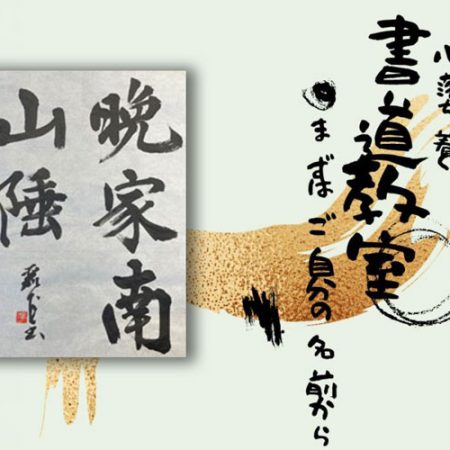 書道教室
まずご自分の名前から
晩家南
山陲